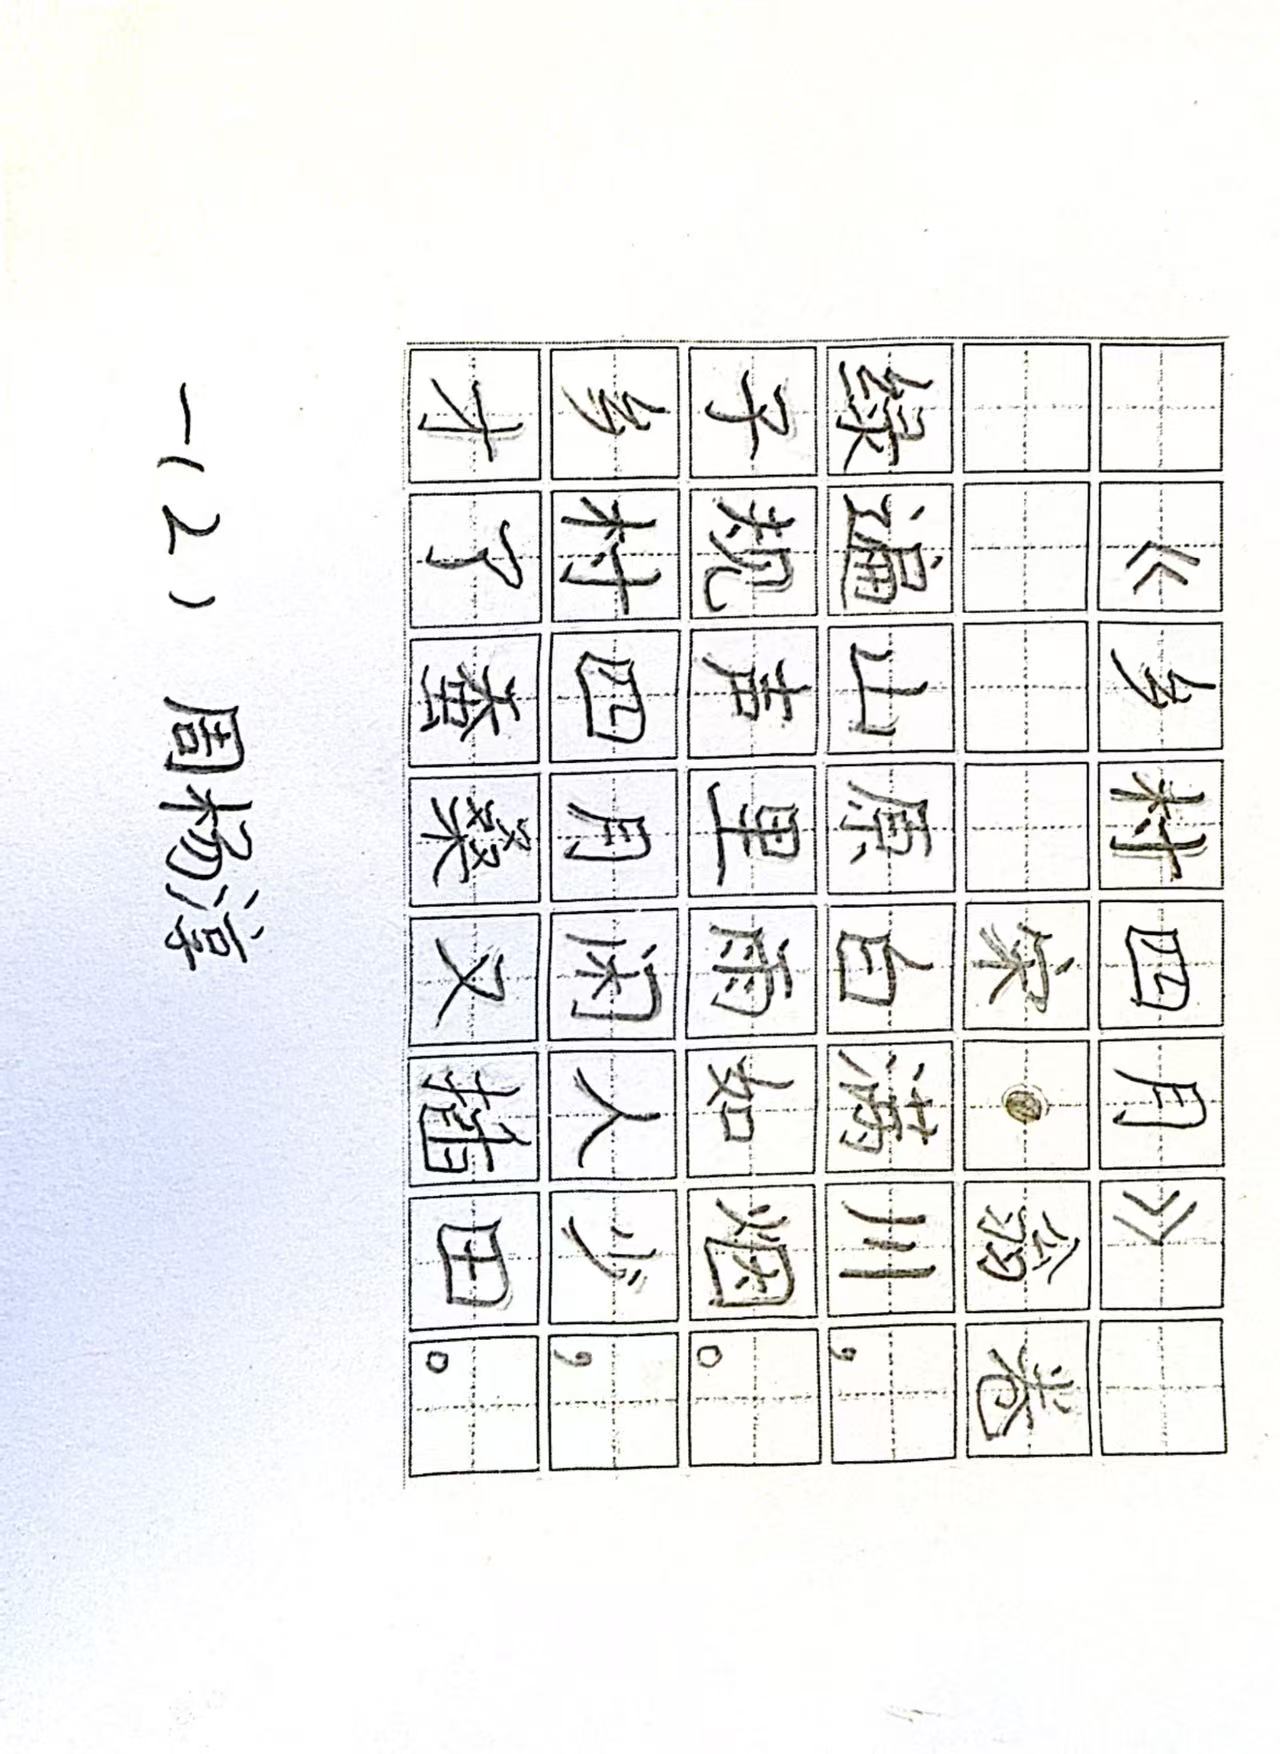 《乡村四月》
宋·翁卷
绿遍山原白满川，
子规声里雨如烟。
乡村四月闲人少，
才了蚕桑又插田。
一(2) 周杨淳